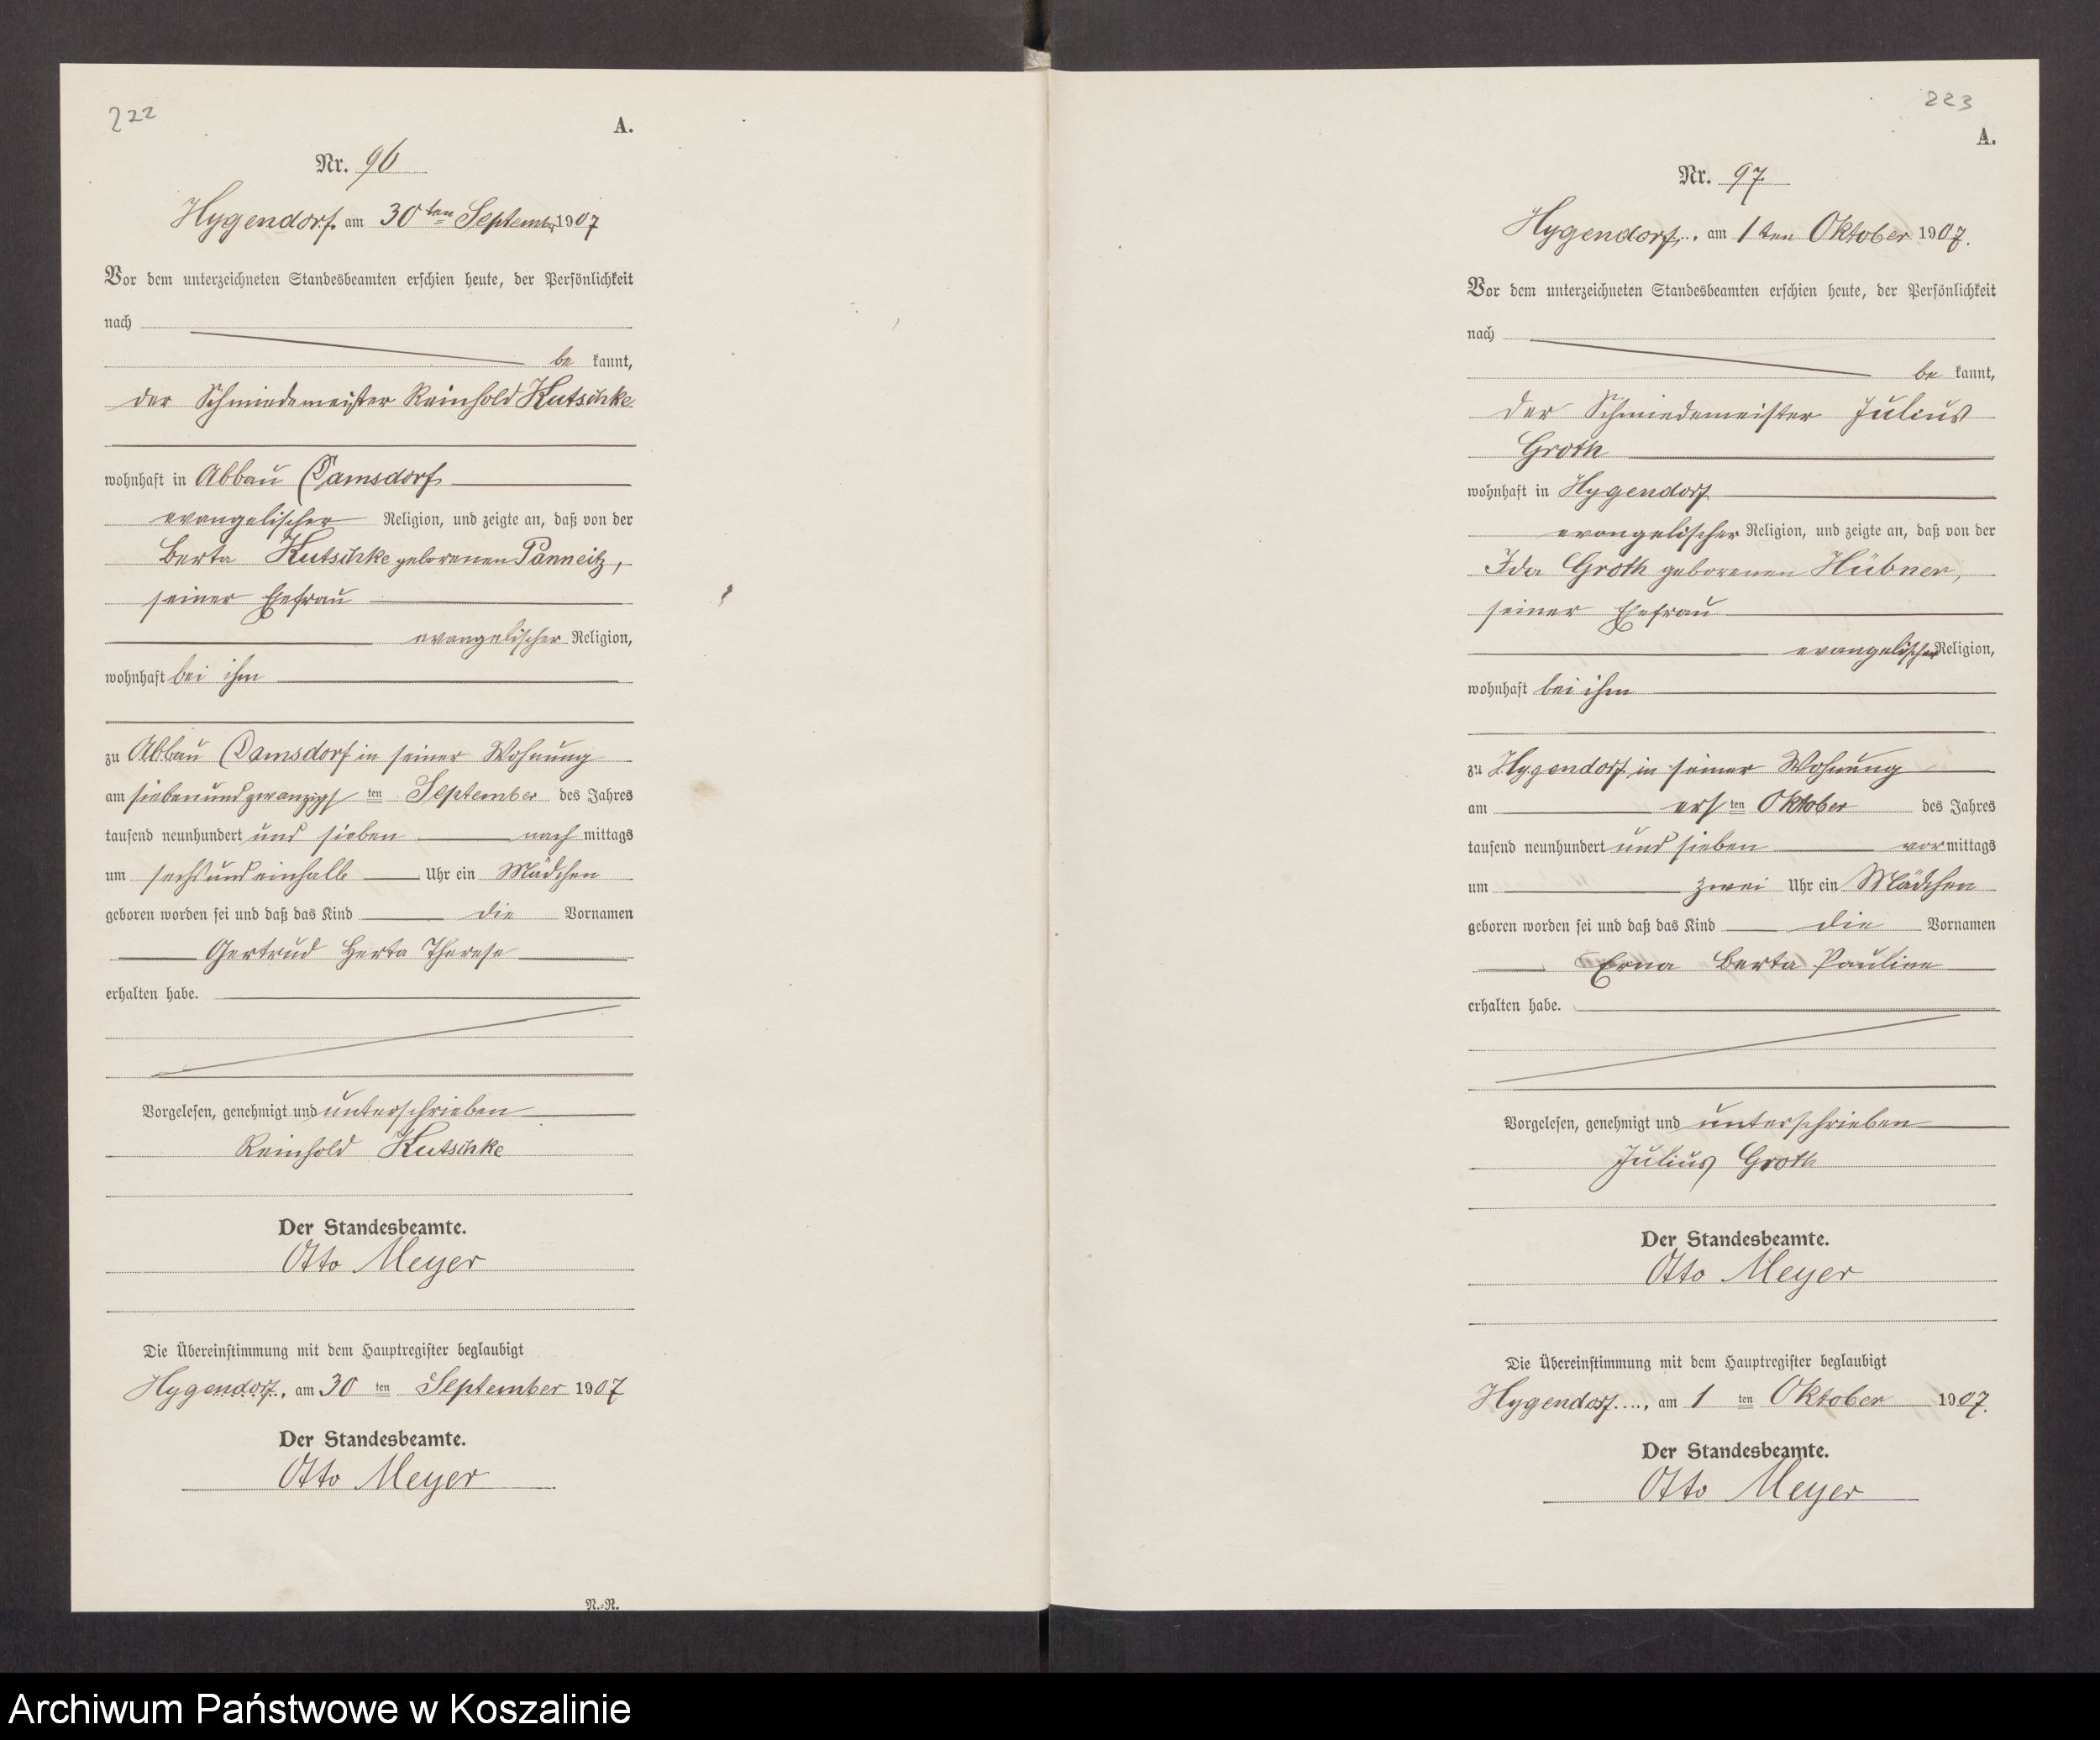 222
A.
Nr. 96
Hygendorf, am 30ten September 1907
Vor dem unterzeichneten Standesbeamten erschien heute, der Persönlichkeit
nach
be kannt,
der Schmiedemeister Reinhold Kutschke
wohnhaft in Abbau Damsdorf
evangelischer Religion, und zeigte an, daß von der
Berta Kutschke geborenen Panneitz,
seiner Ehefrau
evangelischer Religion,
wohnhaft bei ihm
zu Abbau Damsdorf in seiner Wohnung
am siebenundzwanzigs ten September des Jahres
tausend neunhundert und sieben nach mittags
um sechsundeinhalb Uhr ein Mädchen
geboren worden sei und daß das Kind die Vornamen
Gertrud Herta Therese
erhalten habe.
Vorgelesen, genehmigt und unterschrieben
Reinhold Kutschke
Der Standesbeamte.
Otto Meyer
Die Übereinstimmung mit dem Hauptregister beglaubigt
Hygendorf, am 30 ten September 1907
Der Standesbeamte.
Otto Meyer
N.=N.
223
A.
Nr. 97
Hygendorf, am 1ten Oktober 1907.
Vor dem unterzeichneten Standesbeamten erschien heute, der Persönlichkeit
nach
be kannt,
der Schmiedemeister Julius
Groth
wohnhaft in Hygendorf
evangelischer Religion, und zeigte an, daß von der
Ida Groth geborenen Hübner,
seiner Ehefrau
evangelischer Religion,
wohnhaft bei ihm
zu Hygendorf in seiner Wohnung
am ers ten Oktober des Jahres
tausend neunhundert und sieben vor mittags
um zwei Uhr ein Mädchen
geboren worden sei und daß das Kind die Vornamen
Erna Berta Pauline
erhalten habe.
Vorgelesen, genehmigt und unterschrieben
Julius Groth
Der Standesbeamte.
Otto Meyer
Die Übereinstimmung mit dem Hauptregister beglaubigt
Hygendorf, am 1 ten Oktober 1907.
Der Standesbeamte.
Otto Meyer
Archiwum Państwowe w Koszalinie